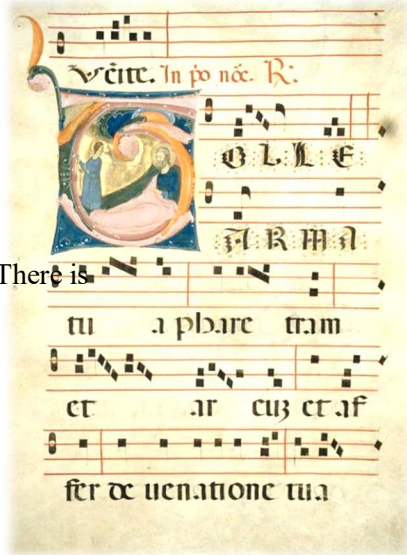 vēite. In p̄o nōc. R:
OLLE
ARMA
There is
tu a phare tram
et ar cuʒ et af
fer de uenatione tua